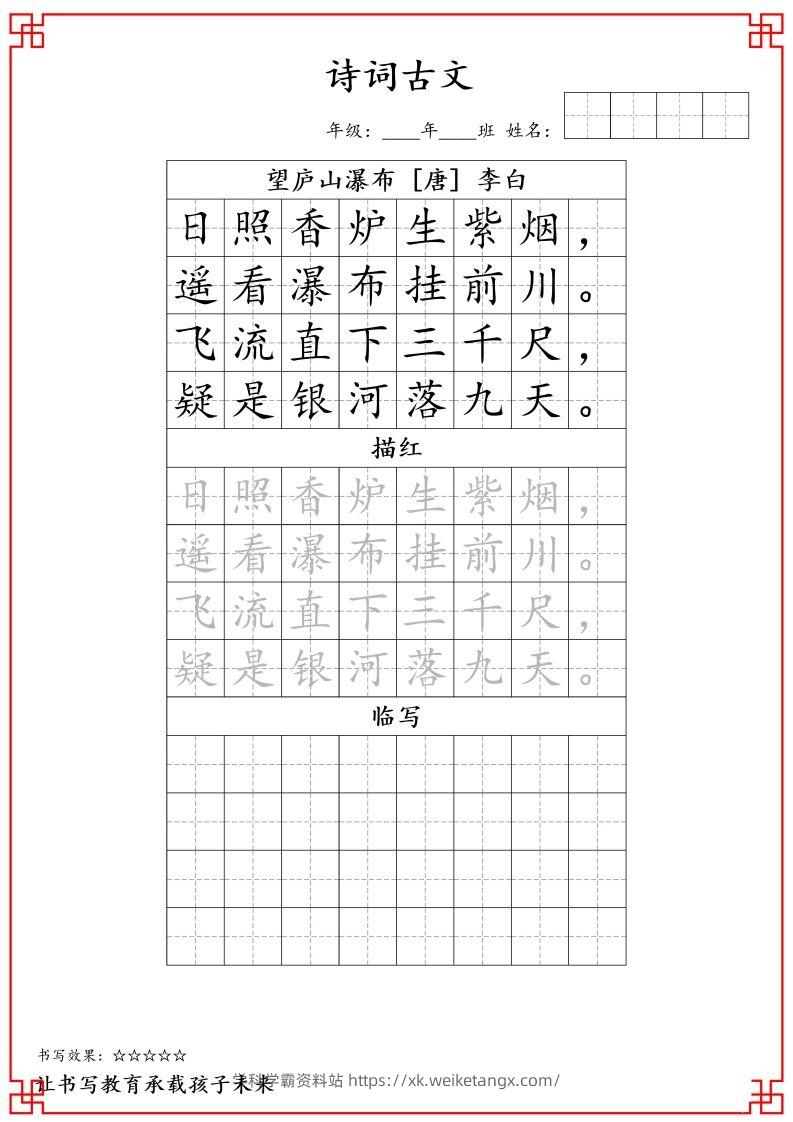 诗词古文
年级：____年____班 姓名：
望庐山瀑布［唐］李白
日照香炉生紫烟，
遥看瀑布挂前川。
飞流直下三千尺，
疑是银河落九天。
描红
日照香炉生紫烟，
遥看瀑布挂前川。
飞流直下三千尺，
疑是银河落九天。
临写
书写效果：☆☆☆☆☆
让书写教育承载孩子未来
学科学霸资料站 https://xk.weiketangx.com/